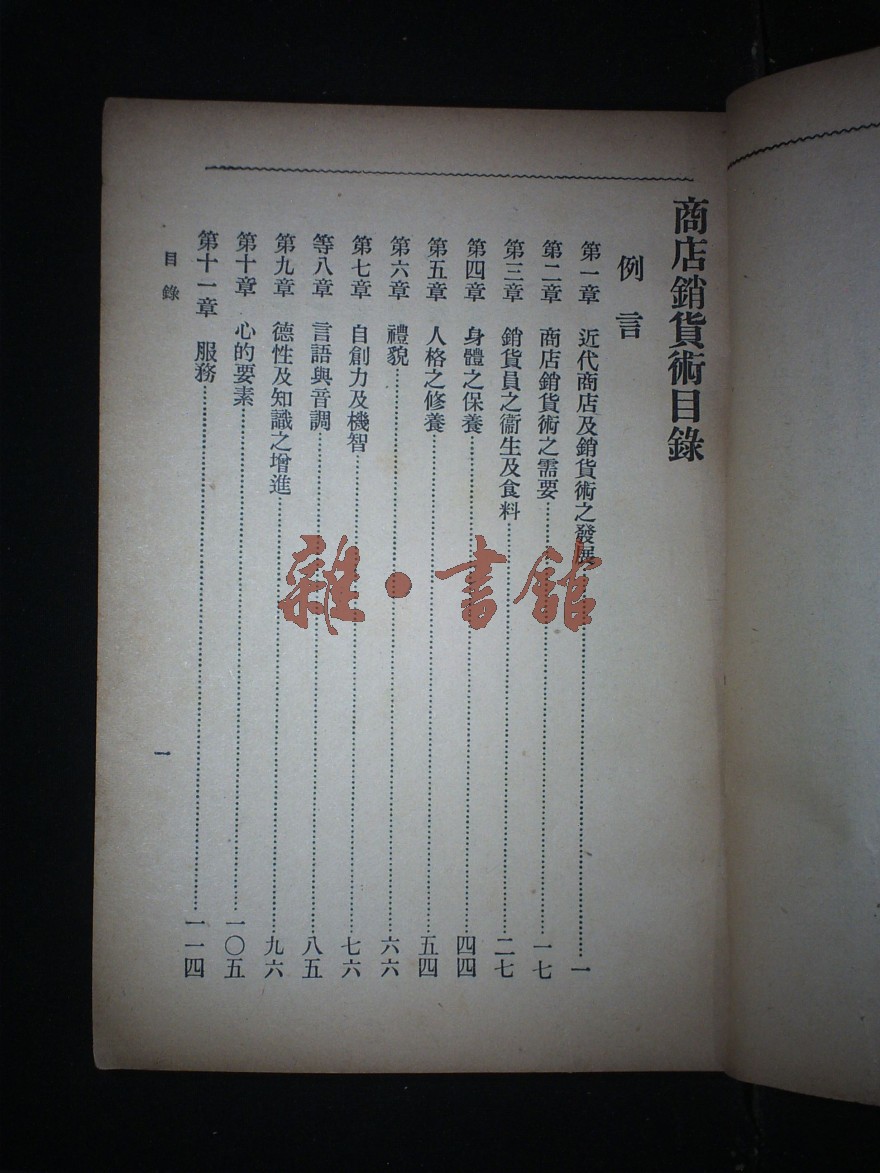 商店銷貨術目錄
例言
第一章 近代商店及銷貨術之發展……一
第二章 商店銷貨術之需要……一七
第三章 銷貨員之衞生及食料……二七
第四章 身體之保養……四四
第五章 人格之修養……五四
第六章 禮貌……六六
第七章 自創力及機智……七六
等八章 言語與音調……八五
第九章 德性及知識之增進……九六
第十章 心的要素……一〇五
第十一章 服務……一一四
目錄
一
雜·書館